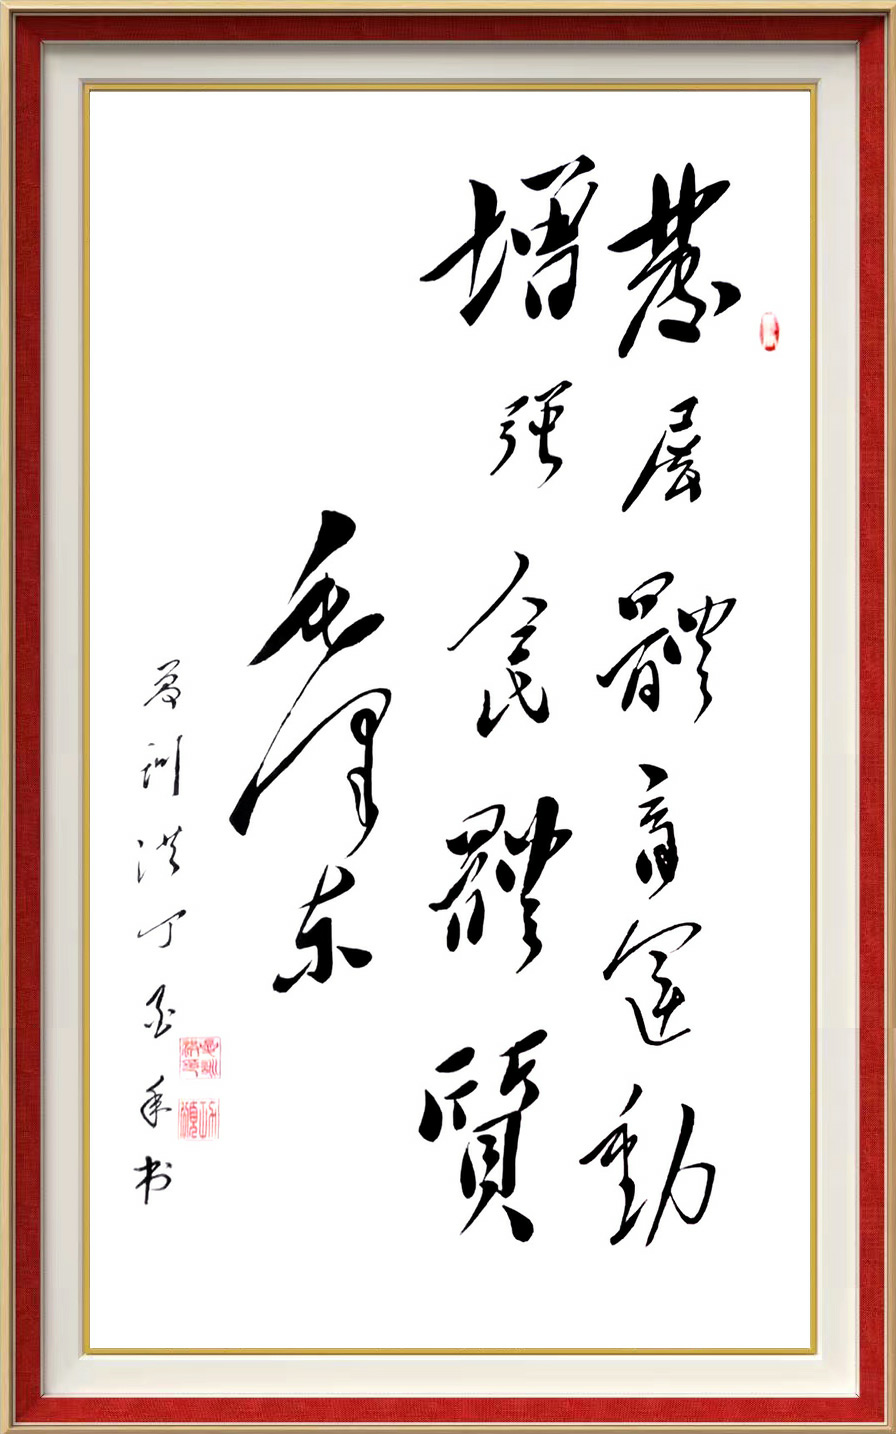 發展體育運動
增强人民體質
毛澤东
训洪丁酉年书